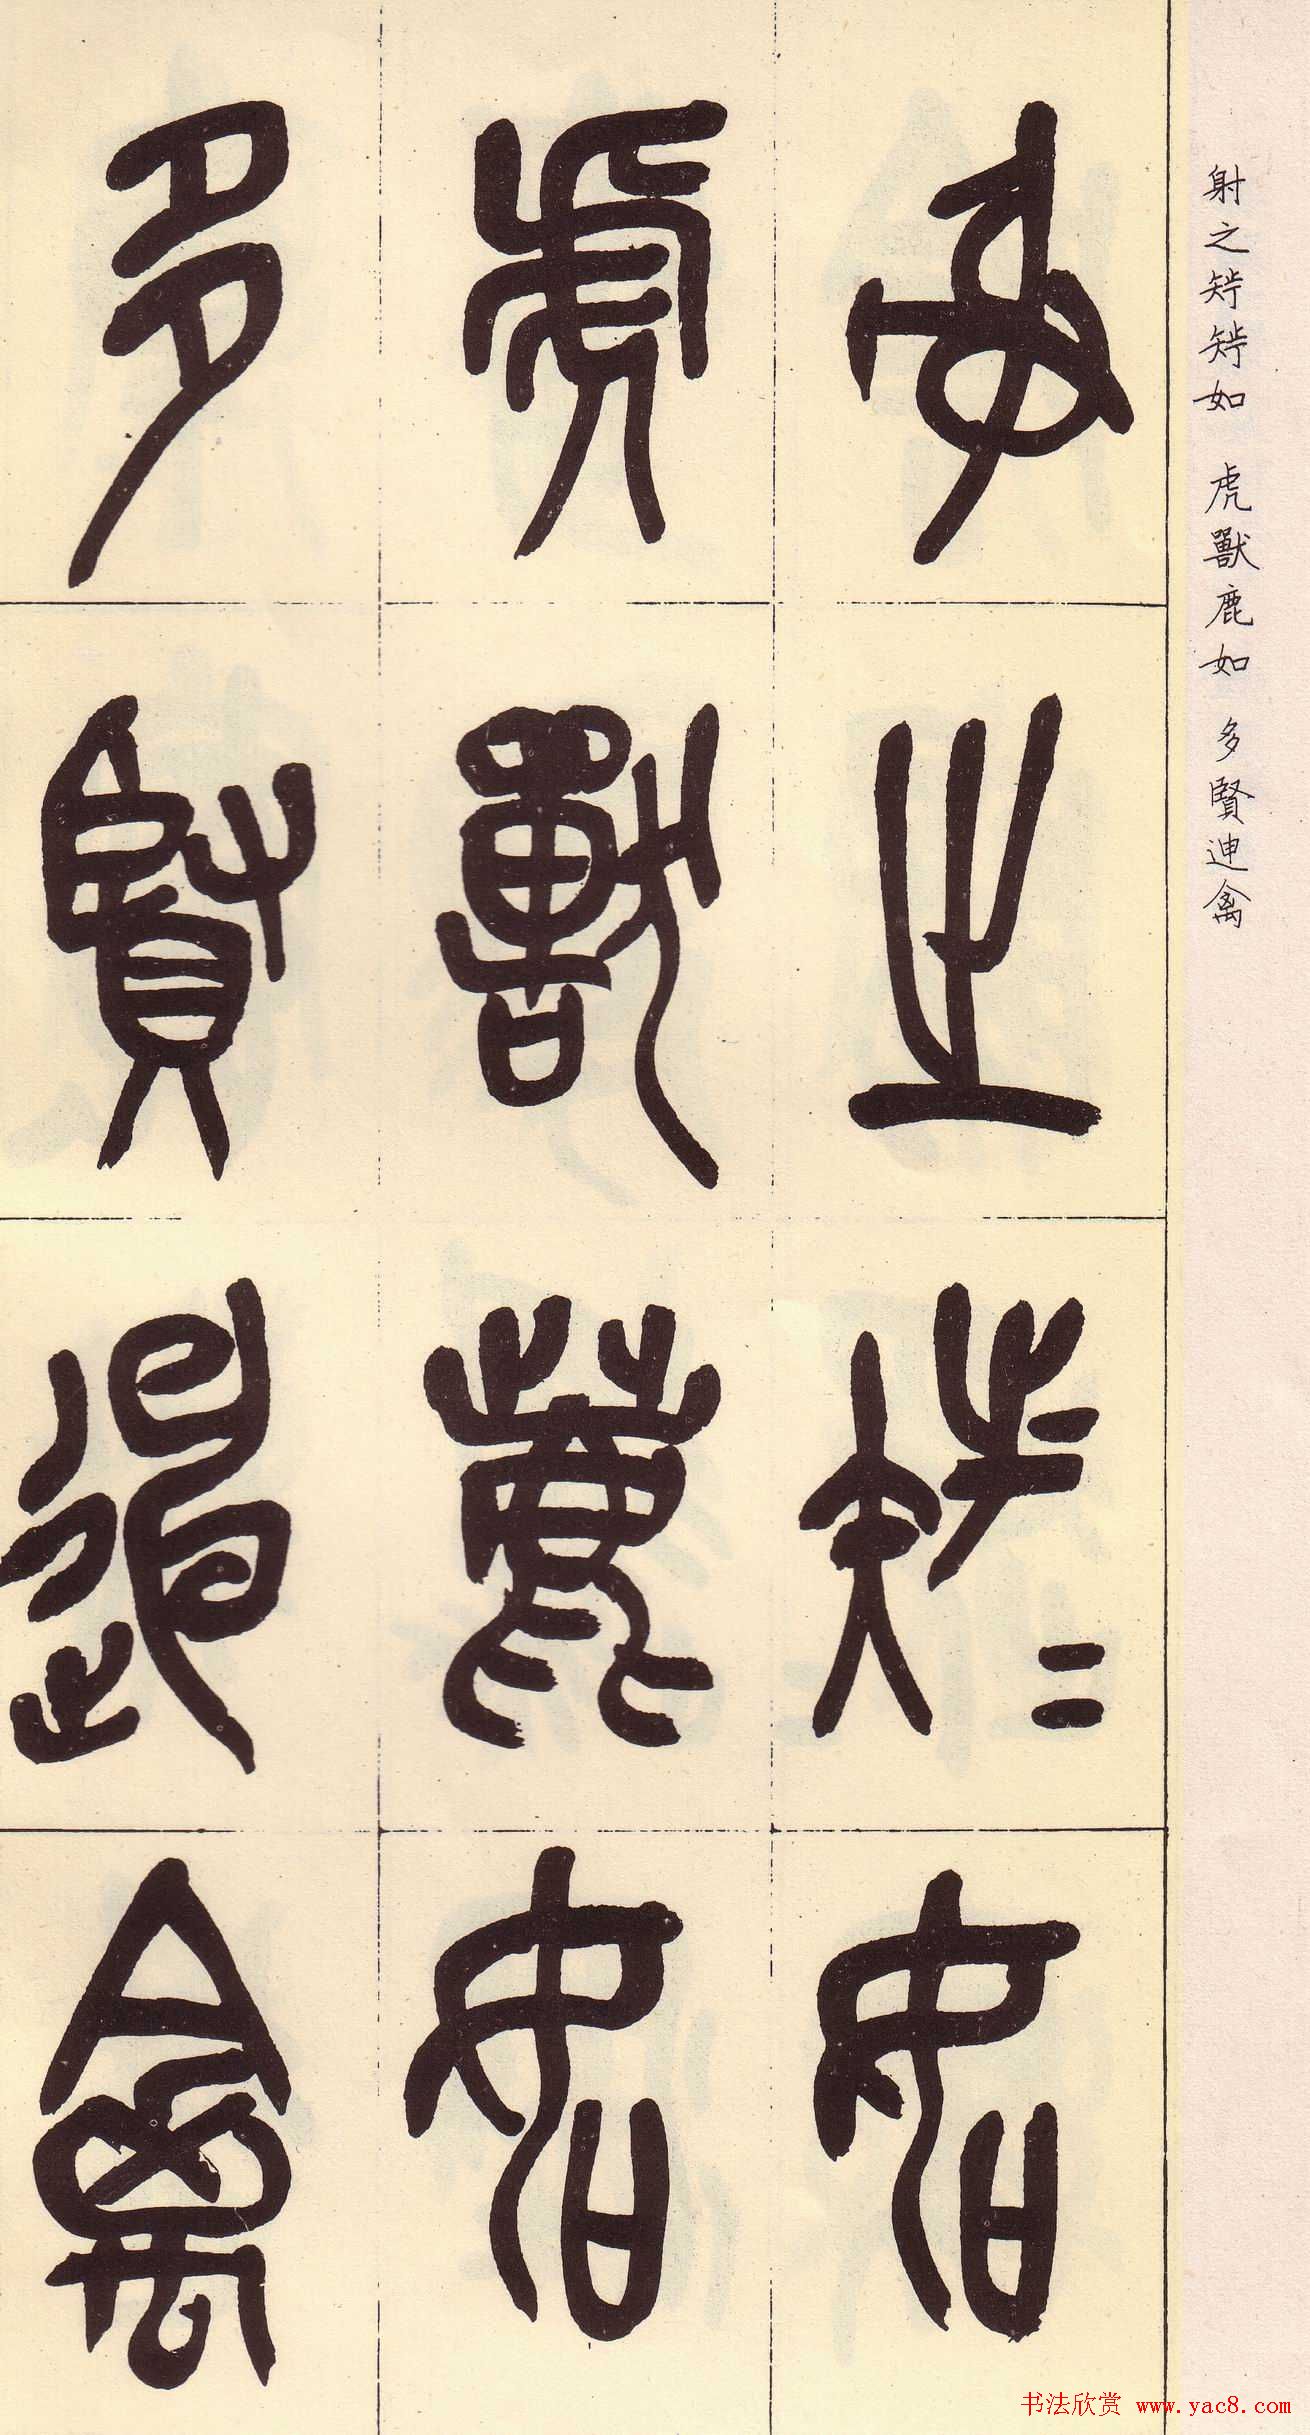 射之𥎦𥎦如 虎獸鹿如 多賢迧禽
射之𥎦二如
虎獸鹿如
多賢迧禽
书法欣赏 www.yac8.com